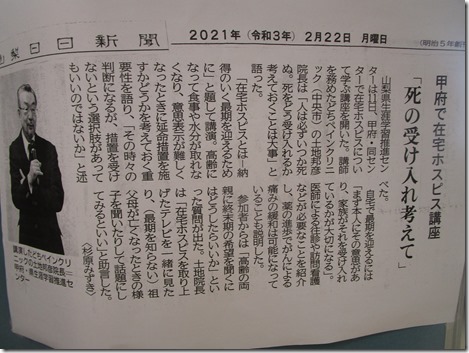 梨日日新聞
2021年（令和3年）2月22日 月曜日
（明治5年創
甲府で在宅ホスピス講座
「死の受け入れ考えて」
山梨県生涯学習推進セン
ターは11日、甲府・同セン
ターで在宅ホスピスについ
て学ぶ講座を開いた。講師
を務めたどちペインクリニ
ック（中央市）の土地邦彦
院長は「人は必ずいつか死
ぬ。死をどう受け入れるか
考えておくことは大事」と
語った。
「在宅ホスピスとは―納
得のいく最期を迎えるため
に」と題して講演。高齢に
なって食事や水分が取れな
くなり、意思表示が難しく
なったときに延命措置を施
すかどうかを考えておく重
要性を語り、「その時々の
判断になるが、措置を受け
ないという選択肢があって
もいいのではないか」と述
べた。
自宅で最期を迎えるには
「まず本人にその意思があ
り、家族がそれを受け入れ
ているかが大切になる」。
医師による往診や訪問看護
などが必要なことを紹介
し、薬の進歩でがんによる
痛みの緩和は可能になって
いることも説明した。
参加者からは「高齢の両
親に終末期の希望を聞くに
はどうしたらいいか」とい
った質問が出た。土地院長
は「在宅ホスピスを取り上
げたテレビを一緒に見た
り、（最期を知らない）祖
父母が亡くなったときの様
子を聞いたりして話題にし
てみるといい」と助言した。
（杉原みずき）
講演したどちペインクリ
ニックの土地邦彦院長＝
甲府・県生涯学習推進セ
ンター